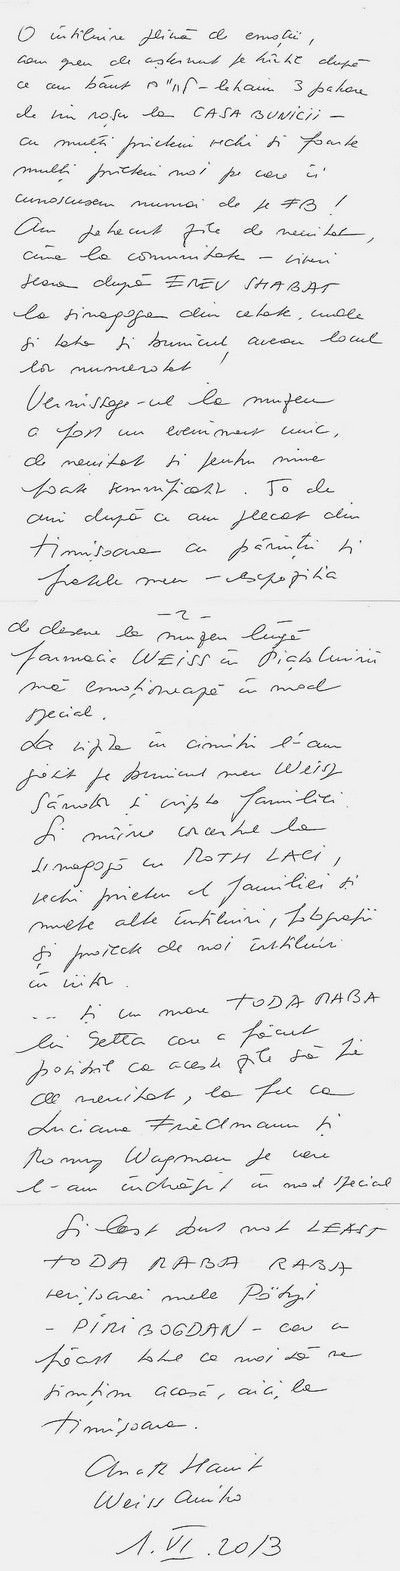 O întîlnire plină de emoții,
cam greu de așternut pe hîrtie după
ce am băut לחיים - lehaim 3 pahare
de vin roșu la CASA BUNICII -
cu mulți prieteni vechi și foarte
mulți prieteni noi pe care îi
cunoscusem numai de pe FB!
Am petrecut zile de neuitat,
cina la comunitate - vineri
seara după EREV SHABAT
la sinagoga din cetate, unde
și tata și bunicul aveau locul
lor numerotat!
Vernissage-ul la muzeu
a fost un eveniment unic,
de neuitat și pentru mine
foarte semnificativ. 50 de
ani după ce am plecat din
Timișoara cu părinții și
fratele meu - expoziția
-2-
de desene la muzeu lîngă
farmacia WEISS în Piața Unirii
mă emoționează în mod
special.
La vizita în cimitir l-am
găsit pe bunicul meu Weisz
Sándor și cripta familiei.
Și mîine concertul la
sinagogă cu ROTH LACI,
vechi prieten al familiei și
multe alte întîlniri, fotografii
și proiecte de noi întîlniri
în viitor.
... Și un mare TODA RABA
lui Getta care a făcut
posibil ca aceste zile să fie
de neuitat, la fel ca
Luciana Friedmann și
Romy Wagman pe care
l-am îndrăgit în mod special
Și last but not LEAST
TODA RABA RABA
verișoarei mele Pötyi
- PIRI BOGDAN - care a
făcut totul ca noi să ne
simțim acasă, aici, la
Timișoara.
Anat Hanit
Weiss Aniko
1. VI. 2013